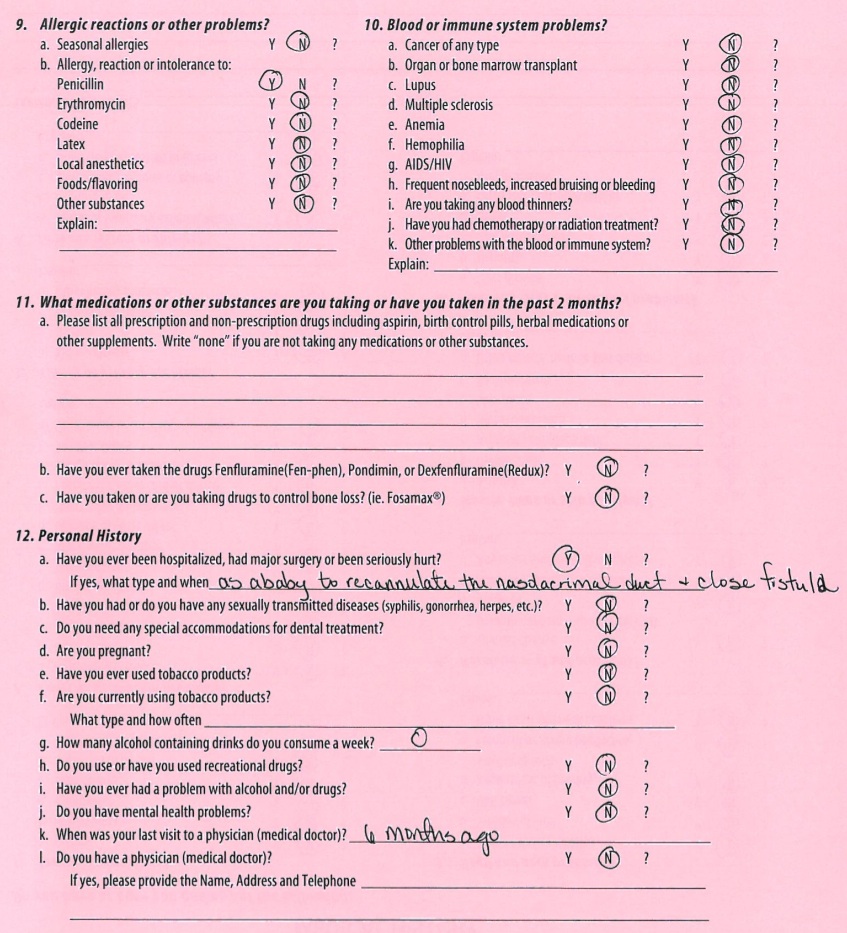 9. Allergic reactions or other problems?
a. Seasonal allergies Y N ?
b. Allergy, reaction or intolerance to:
Penicillin Y N ?
Erythromycin Y N ?
Codeine Y N ?
Latex Y N ?
Local anesthetics Y N ?
Foods/flavoring Y N ?
Other substances Y N ?
Explain:
10. Blood or immune system problems?
a. Cancer of any type Y N ?
b. Organ or bone marrow transplant Y N ?
c. Lupus Y N ?
d. Multiple sclerosis Y N ?
e. Anemia Y N ?
f. Hemophilia Y N ?
g. AIDS/HIV Y N ?
h. Frequent nosebleeds, increased bruising or bleeding Y N ?
i. Are you taking any blood thinners? Y N ?
j. Have you had chemotherapy or radiation treatment? Y N ?
k. Other problems with the blood or immune system? Y N ?
Explain:
11. What medications or other substances are you taking or have you taken in the past 2 months?
a. Please list all prescription and non-prescription drugs including aspirin, birth control pills, herbal medications or
other supplements. Write "none" if you are not taking any medications or other substances.
b. Have you ever taken the drugs Fenfluramine(Fen-phen), Pondimin, or Dexfenfluramine(Redux)? Y N ?
c. Have you taken or are you taking drugs to control bone loss? (ie. Fosamax®) Y N ?
12. Personal History
a. Have you ever been hospitalized, had major surgery or been seriously hurt? Y N ?
If yes, what type and when as a baby to recannulate the nasdacrimal duct + close fistula
b. Have you had or do you have any sexually transmitted diseases (syphilis, gonorrhea, herpes, etc.)? Y N ?
c. Do you need any special accommodations for dental treatment? Y N ?
d. Are you pregnant? Y N ?
e. Have you ever used tobacco products? Y N ?
f. Are you currently using tobacco products? Y N ?
What type and how often
g. How many alcohol containing drinks do you consume a week? 0
h. Do you use or have you used recreational drugs? Y N ?
i. Have you ever had a problem with alcohol and/or drugs? Y N ?
j. Do you have mental health problems? Y N ?
k. When was your last visit to a physician (medical doctor)? 6 months ago
l. Do you have a physician (medical doctor)? Y N ?
If yes, please provide the Name, Address and Telephone